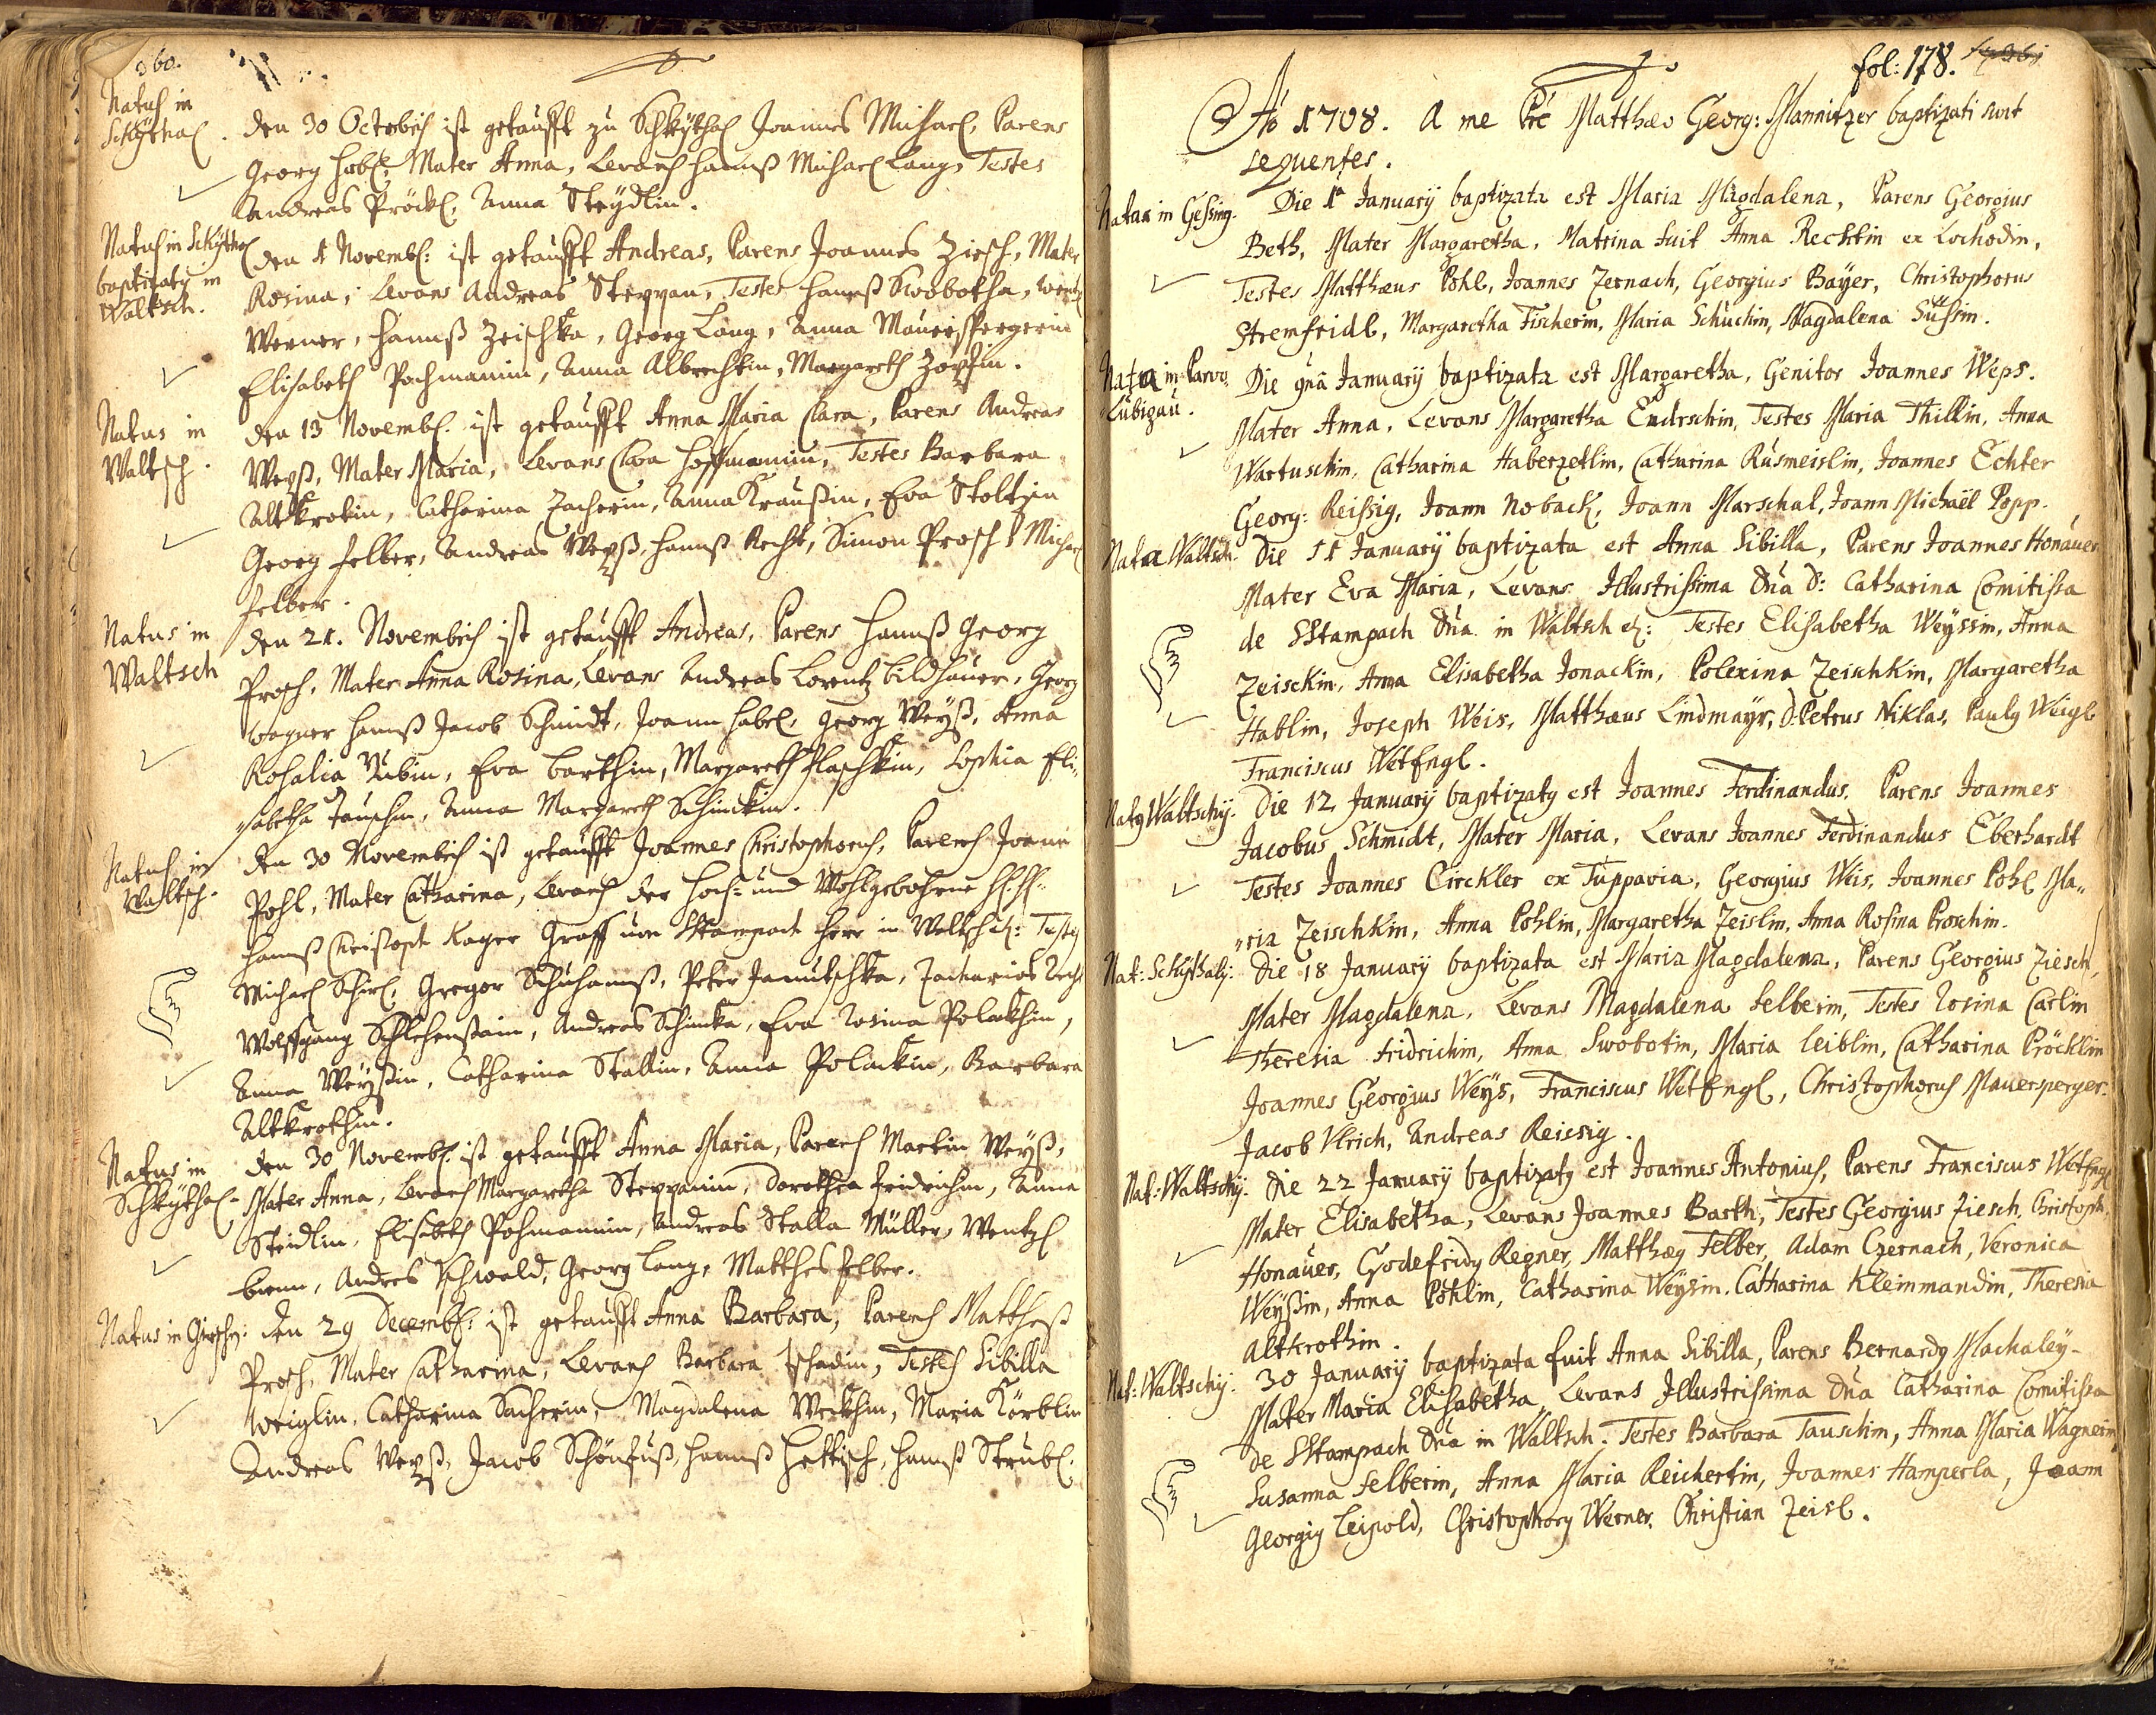 360.
Natus in
Schÿthal.
den 30 Octobris ist getaufft zu Schkÿthal Joannes Michael, Parens
Georg Hebl: Mater Anna, Levans Hannß Michael Lang, Testes
Andreas Pröckl, Anna Steydlin.
Natus in Schÿthal
baptizatus in
Waltsch.
den 1 Novemb: ist getaufft Andreas, Parens Joannes Ziesch, Mater
Rosina, Levans Andreas Steppan, Testes Hannß Swobotha, Wentz
Werner, Hannß Zeischka, Georg Lang, Anna Mauerspergerin
Elisabeth Pochmanin, Anna Albrechtin, Margareth Zopfin.
Natus in
Waltsch.
den 13 Novemb: ist getaufft Anna Maria Clara, Parens Andreas
Weyß, Mater Maria, Levans Clara Hoffmannin, Testes Barbara
Altkrotin, Catharina Zacherin, Anna Kraußin, Eva Stoltzin
Georg Felber, Andreas Weyß, Hannß Recht, Simon Prosch, Michael
Felber.
Natus in
Waltsch
den 21. Novembris ist getaufft Andreas, Parens Hannß Georg
Prosch, Mater Anna Rosina, Levans Andreas Lorentz Bildhauer, Georg
Wagner Hannß Jacob Schmidt, Joann Habel, Georg Weyß, Anna
Rosalia Rubin, Eva Barthin, Margareth Flaschkin, Sophia Eli„
„sabetha Tauschin, Anna Margareth Schimkin.
Natus in
Waltsch.
den 30 Novembris ist getaufft Joannes Christophorus, Parens Joann
Pohl, Mater Catharina, Levans der Hoch- und Wohlgebohrne H: H:
Hannß Christoph Kager Graff von Stampach Herr in Waltsch etc: Testes
Michael Schiel, Gregor Schuhannß, Peter Janutschka, Zacharias Recht
Wolffgang Schlehenstain, Andreas Schimka, Eva Rosina Polakhin,
Anna Weyßin, Catharina Stallin, Anna Polackin, Barbara
Altkrothin.
Natus in
Schkÿthal
den 30 Novemb: ist getaufft Anna Maria, Parens Martin Weyß,
Mater Anna, Levans Margaretha Steppanin, Dorothea Fridrichin, Anna
Steidlin, Elisabeth Pohmannin, Andreas Stalla Müller, Wentzl
Andres Schwald, Georg Lang, Matthes Felber.
Natus in
den 29 Decemb: ist getaufft Anna Barbara, Parens Mattheß
Prosch, Mater Catharina, Levans Barbara Tschadin, Testes Sibilla
Weiglin, Catharina Sacherin, Magdalena Weckhin, Maria Körblin
Andreas Weyß, Jacob Schönfuß, Hannß Hettisch, Hannß Strubl.
fol: 178.
Ao 1708. A me Pre Matthæo Georg: Mannitzer baptizati sunt
sequentes.
Nata in Gessing.
Die 1a Januarÿ baptizata est Maria Magdalena, Parens Georgius
Beth, Mater Margaretha, Matrina fuit Anna Rechtin ex Lochodin,
Testes Matthæus Pohl, Joannes Zernach, Georgius Baÿer, Christophorus
Stremfridl, Margaretha Fischerin, Maria Schuchin, Magdalena Süssin.
Nata in Parvo
Lubigau.
Die 9na Januarÿ baptizata est Margaretha, Genitor Joannes Weps.
Mater Anna, Levans Margaretha Endrschin, Testes Maria Thillin, Anna
Wartuschin, Catharina Haberzetlin, Catharina Rusmeislin, Joannes Echter
Georg: Reissig, Joann Noback, Joann Marschal, Joann Michaël Popp.
Nata Waltsch.
Die 11 Januarÿ baptizata est Anna Sibilla, Parens Joannes Honauer
Mater Eva Maria, Levans Illustrissima Dna D: Catharina Comitissa
de Stampach Dna in Waltsch etc: Testes Elisabetha Weyssin, Anna
Zeisckin, Anna Elisabetha Jonackin, Polexina Zeischkin, Margaretha
Hablin, Joseph Weis, Matthæus Lindmayr, D: Petrus Niklas, Paulg Weigl
Franciscus WetEngl.
Natg Waltschÿ.
Die 12 Januarÿ baptizatg est Joannes Ferdinandus, Parens Joannes
Jacobus Schmidt, Mater Maria, Levans Joannes Ferdinandus Eberhardt
Testes Joannes Circkler ex Tuppavia, Georgius Weis, Joannes Pohl Ma„
„ria Zeischkin, Anna Pohlin, Margaretha Zeislin, Anna Rosina Proschin.
Nat: Schÿthalÿ:
Die 18 Januarÿ baptizata est Maria Magdalena, Parens Georgius Ziesch,
Mater Magdalena, Levans Magdalena Felberin, Testes Rosina Carlin
Theresia Fridrichin, Anna Swobotin, Maria Leiblin, Catharina Pröcklin
Joannes Georgius Weÿs, Franciscus WetEngl, Christophorus Mauersperger.
Jacob Ulrich, Andreas Reissig.
Nat: Waltschÿ.
Die 22 Januarÿ baptizatg est Joannes Antonius, Parens Franciscus WetEngl
Mater Elisabetha, Levans Joannes Barth, Testes Georgius Ziesch, Christoph.
Honauer, Godefridg Regner, Matthæg Felber, Adam Czernach, Veronica
Weÿßin, Anna Pohlin, Catharina Weÿsin, Catharina Kleinmandin, Theresia
Altkrothin.
Nat: Waltschÿ:
30 Januarÿ baptizata fuit Anna Sibilla, Parens Bernardg Machaleÿ.
Mater Maria Elisabetha, Levans Illustrissima Dna Catharina Comitissa
de Stampach Dna in Waltsch. Testes Barbara Tauschin, Anna Maria Wagnerin
Susanna Felberin, Anna Maria Reichertin, Joannes Hamperla, Joann
Georgig Leipold, Christophorg Werner, Christian Zeisl.